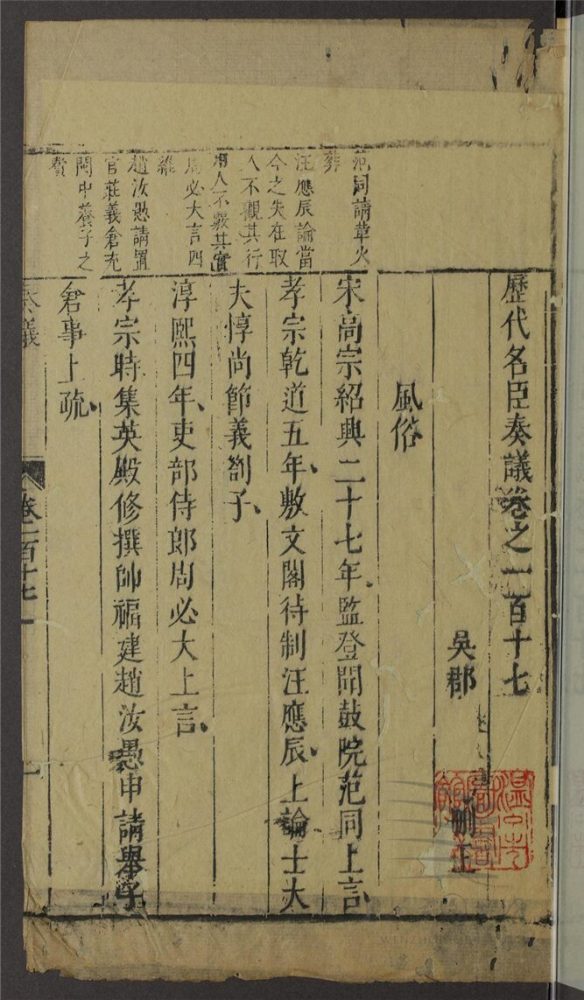 歷代名臣奏議卷之一百十七
吳郡 刪正
風俗
宋高宗紹興二十七年監登聞鼓院范同上言
孝宗乾道五年敷文閣待制汪應辰上論士大
夫惇尚節義劄子
淳熙四年吏部侍郎周必大上言
孝宗時集英殿修撰帥福建趙汝愚申請舉子
倉事上疏
范同請革火
葬
汪應辰論當
今之失在取
人不觀其行
用人不覈其實
周必大言四
維
趙汝愚請置
官莊義倉充
閩中養子之
費
奏議
卷一百十七
一